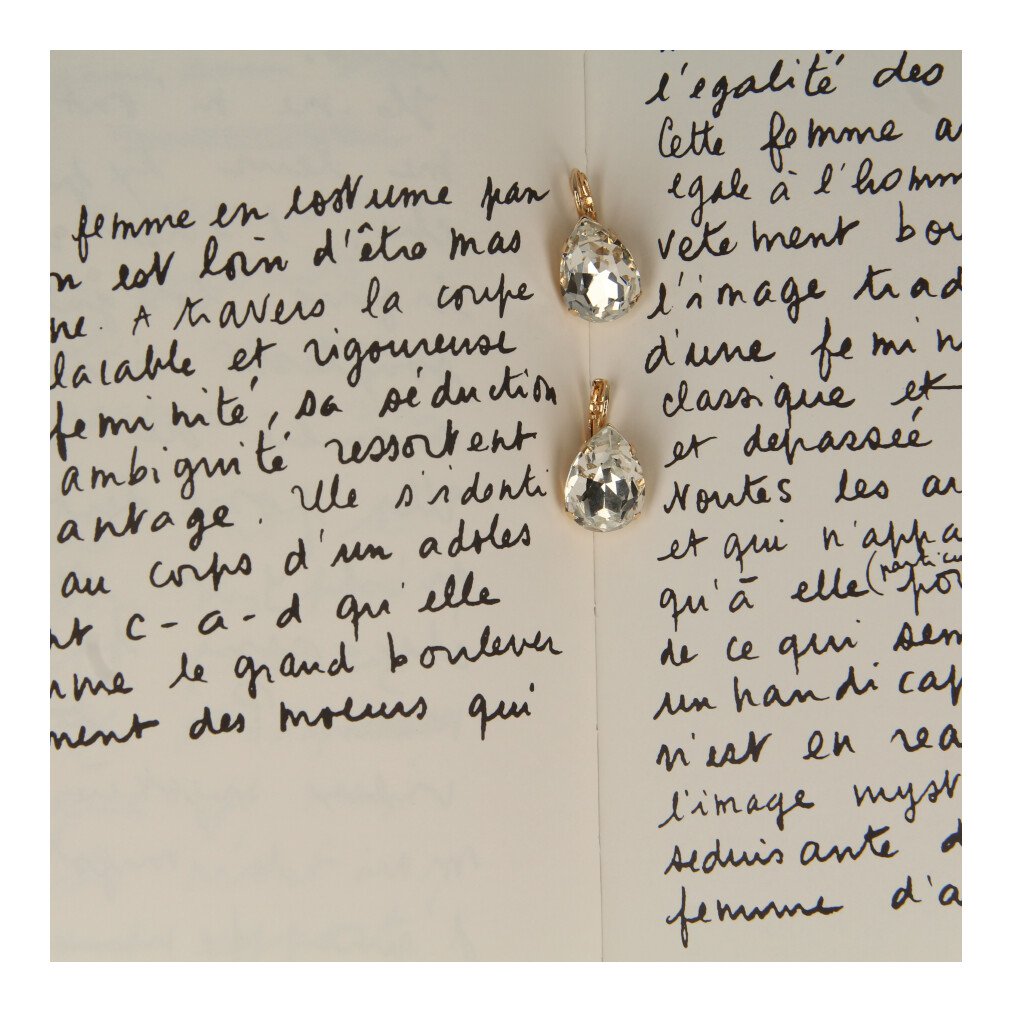 femme en costume pan
n est loin d'être mas
ne. A travers la coupe
lacable et rigoureuse
feminité, sa séduction
ambiguité ressortent
antage. Elle s'identi
au corps d'un adoles
nt c-a-d qu'elle
me le grand boulever
ment des moeurs qui
l'egalité des
Cette femme a
egale à l'homm
vetement bou
l'image trad
d'une femin
classique et
et depassée
toutes les au
et qui n'appa
qu'à elle (particu
pou
de ce qui sem
un handicap
n'est en rea
l'image myst
seduisante d
femme d'a